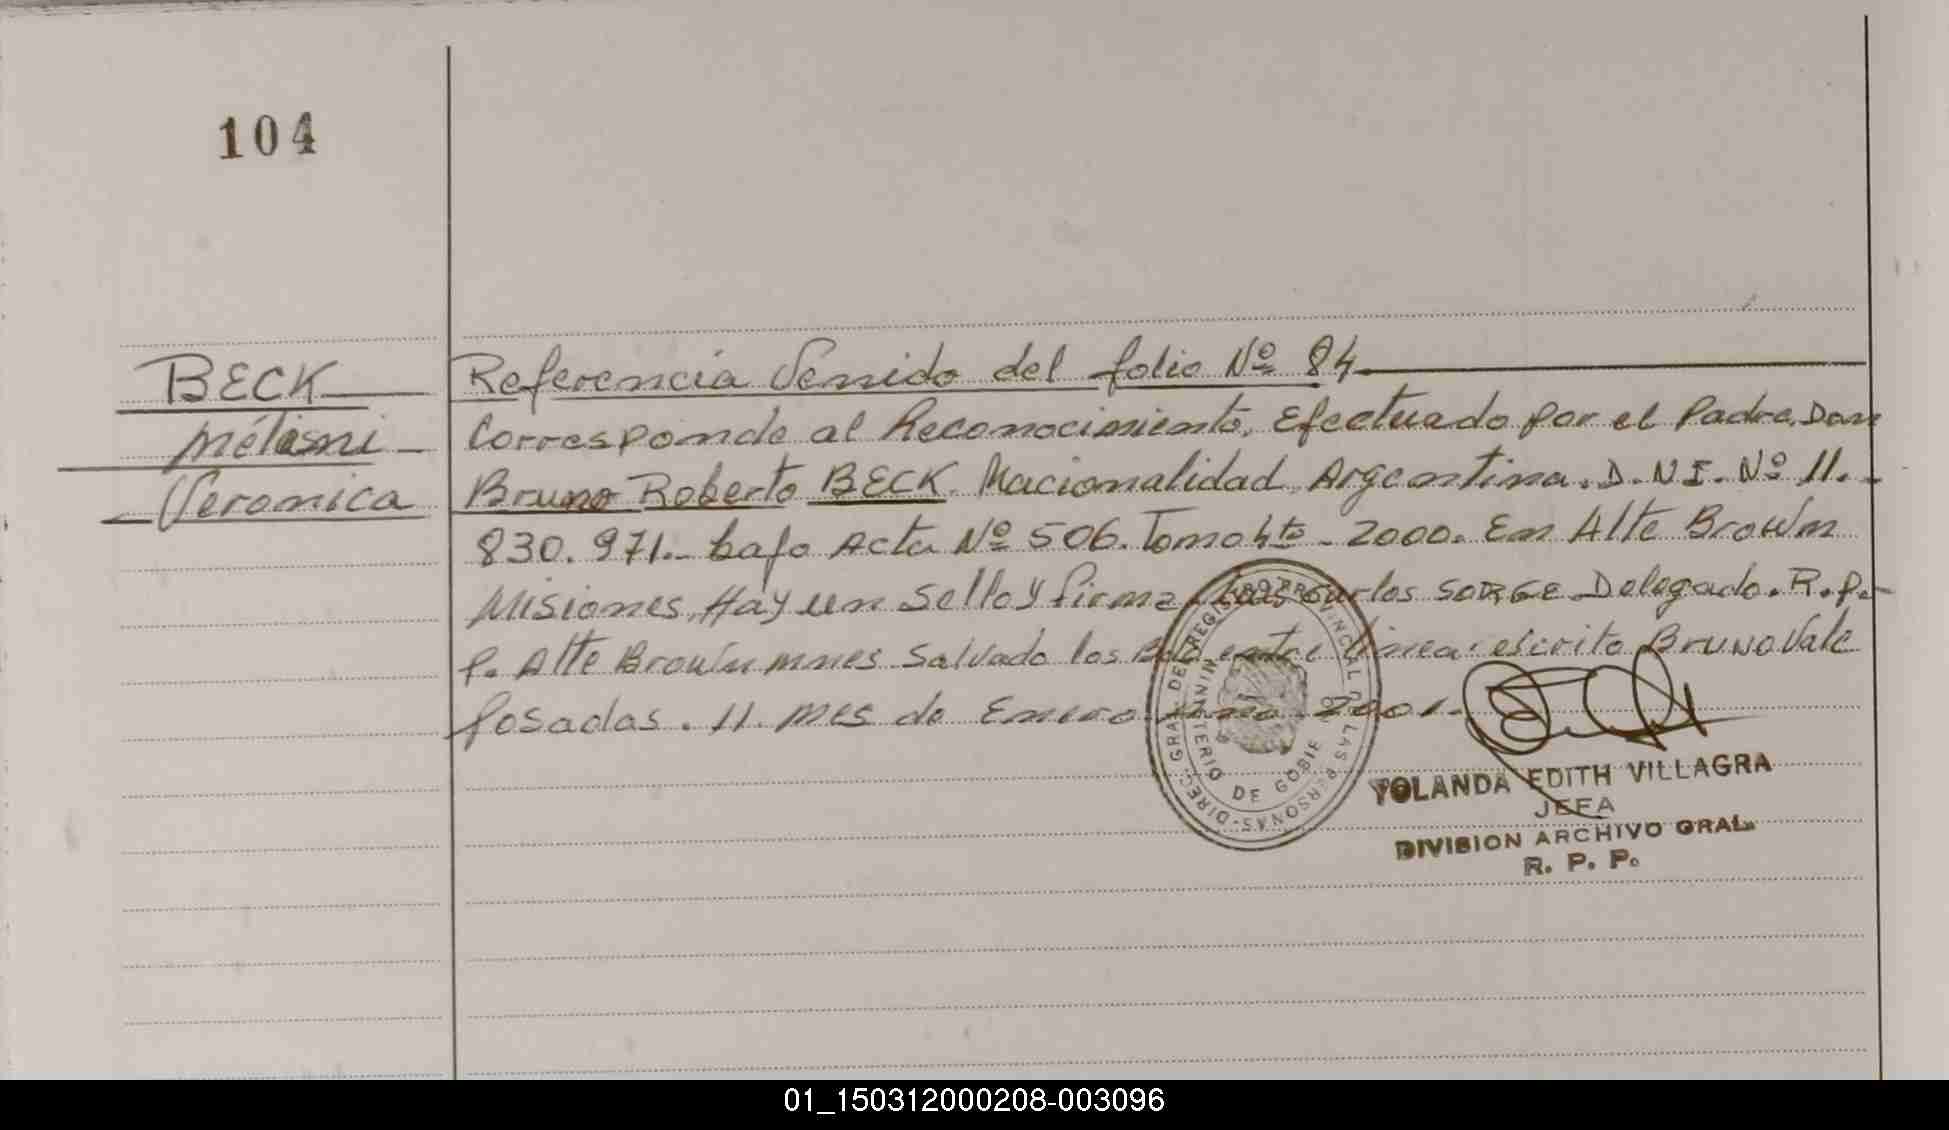 104
BECK
Mélisni
Veronica
Referencia Venido del folio Nº 84
Corresponde al Reconocimiento. Efectuado por el Padre. Don
Bruno Roberto BECK. Nacionalidad Argentina. D.N.I. Nº 11.-
830.971.- bajo Acta Nº 506. Tomo 4to - 2000. En Alte Brown
Misiones. Hay un Sello y firma Luis Carlos SORGE Delegado. R.P.-
P. Alte Brown mnes Salvado los entre linea: escrito BRUNO Vale
Posadas. 11. mes de Enero año 2001.-
DIREC. GRAL. DEL REGISTRO PROVINCIAL DE LAS PERSONAS
MINISTERIO DE GOBIERNO
YOLANDA EDITH VILLAGRA
JEFA
DIVISION ARCHIVO GRAL.
R. P. P.
01_150312000208-003096